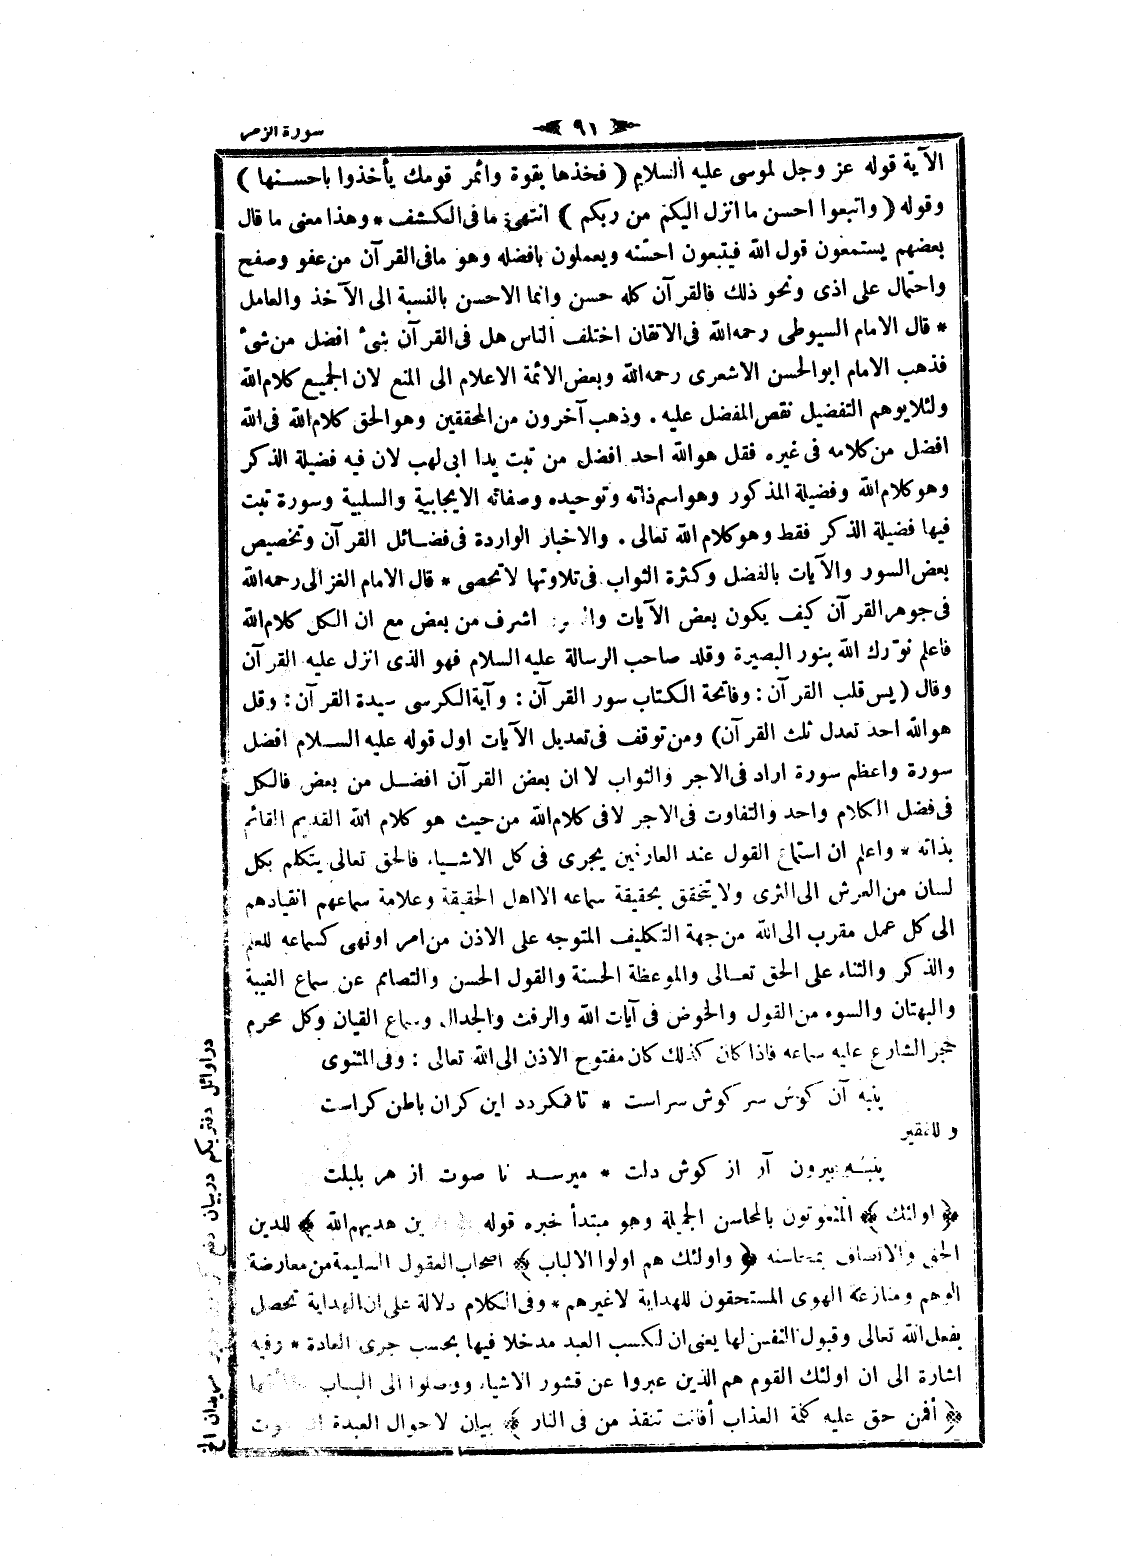 سورة الزمر
٩١
الآية قوله عز وجل لموسى عليه السلام ( فخذها بقوة وائمر قومك يأخذوا باحسنها )
وقوله ( واتبعوا احسن ما انزل اليكم من ربكم ) انتهى ما فى الكشف * وهذا معنى ما قال
بعضهم يستمعون قول الله فيتبعون احسنه ويعملون بافضله وهو مافى القرآن من عفو وصفح
واحتمال على اذى ونحو ذلك فالقرآن كله حسن وانما الاحسن بالنسبة الى الآخذ والعامل
* قال الامام السيوطى رحمه الله فى الاتقان اختلف الناس هل فى القرآن شئ افضل من شئ
فذهب الامام ابوالحسن الاشعرى رحمه الله وبعض الائمة الاعلام الى المنع لان الجميع كلام الله
ولئلايوهم التفضيل نقص المفضل عليه . وذهب آخرون من المحققين وهوالحق كلام الله فى الله
افضل من كلامه فى غيره فقل هوالله احد افضل من تبت يدا ابى لهب لان فيه فضيلة الذكر
وهو كلام الله وفضيلة المذكور وهواسم ذاته وتوحيده وصفاته الايجابية والسلبية وسورة تبت
فيها فضيلة الذكر فقط وهو كلام الله تعالى . والاخبار الواردة فى فضائل القرآن وتخصيص
بعض السور والآيات بالفضل وكثرة الثواب فى تلاوتها لاتحصى * قال الامام الغزالى رحمه الله
فى جوهر القرآن كيف يكون بعض الآيات اشرف من بعض مع ان الكل كلام الله
فاعلم نورك الله بنور البصيرة وقلد صاحب الرسالة عليه السلام فهو الذى انزل عليه القرآن
وقال ( يس قلب القرآن : وفاتحة الكتاب سور القرآن : وآية الكرسى سيدة القرآن : وقل
هوالله احد تعدل ثلث القرآن) ومن توقف فى تعديل الآيات اول قوله عليه السلام افضل
سورة واعظم سورة اراد فى الاجر والثواب لا ان بعض القرآن افضل من بعض فالكل
فى فضل الكلام واحد والتفاوت فى الاجر لافى كلام الله من حيث هو كلام الله القديم القائم
بذاته * واعلم ان استماع القول عند العارفين يجرى فى كل الاشياء فالحق تعالى يتكلم بكل
لسان من العرش الى الثرى ولا يتحقق بحقيقة سماعه الااهل الحقيقة وعلامة سماعهم انقيادهم
الى كل عمل مقرب الى الله من جهة التكليف المتوجه على الاذن من امر اونهى كسماعه للعلم
والذكر والثناء على الحق تعالى والموعظة الحسنة والقول الحسن والتصائم عن سماع الغيبة
والبهتان والسوء من القول والخوض فى آيات الله والرفث والجدال وسماع القيان وكل محرم
حجر الشارع عليه سماعه فاذا كان كذلك كان مفتوح الاذن الى الله تعالى : وفى المثنوى
پنبه آن كوش سر كوش سر است * تا نكردد اين كران باطن كراست
وللفقير
پنبه بيرون آر از كوش دلت * ميرسد تا صوت از هر بلبلت
﴿ اولئك ﴾ المنعوتون بالمحاسن الجميلة وهو مبتدأ خبره قوله هديهم الله ﴾ للدين
الحق والاتصاف بمحاسنه ﴿ واولئك هم اولوا الالباب ﴾ اصحاب العقول السليمة من معارضة
الوهم ومنازعة الهوى المستحقون للهداية لاغيرهم * وفى الكلام دلالة على ان الهداية تحصل
بفعل الله تعالى وقبول النفس لها يعنى ان لكسب العبد مدخلا فيها بحسب جرى العادة * وفيه
اشارة الى ان اولئك القوم هم الذين عبروا عن قشور الاشياء ووصلوا الى الباب
﴿ أفمن حق عليه كلمة العذاب أفانت تنقذ من فى النار ﴾ بيان لاحوال العبدة
در اوائل دفتر يكم در بيان دفع